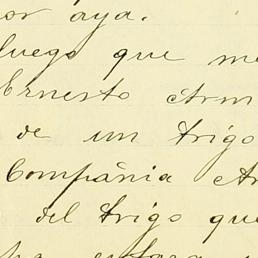 por aya.
luego que me
Ernesto Arm
de un trigo
Compañia Ar
del trigo que